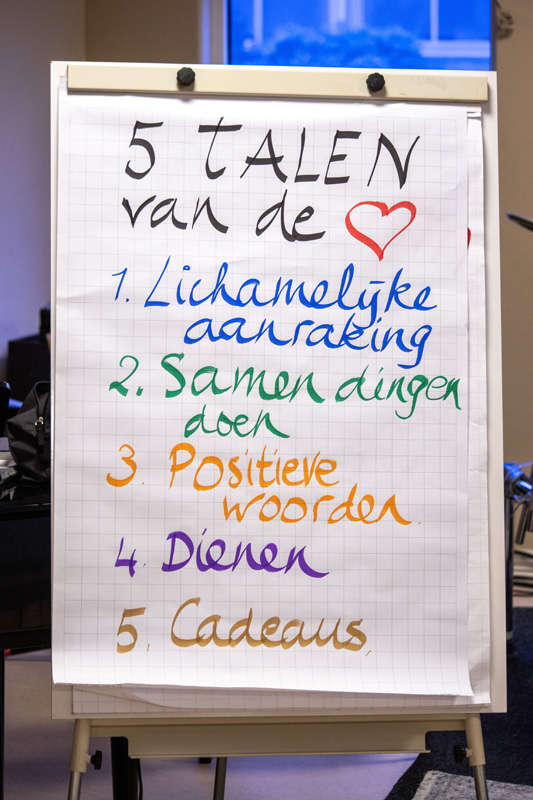 5 TALEN
van de ❤
1. Lichamelijke
aanraking
2. Samen dingen
doen
3. Positieve
woorden.
4. Dienen
5. Cadeaus